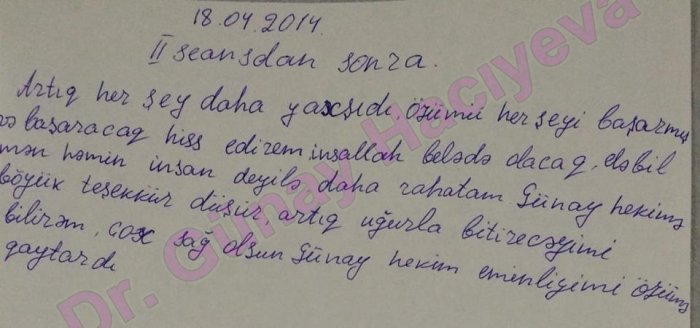 18.04.2014.
II seansdan sonra.
Artıq her şey daha yaxşıdı, özümü her şeyi başarmış
və başaracaq hiss edirem inşallah belədə olacaq, elə bil
mən həmin insan deyilə, daha rahatam Günay hekimə
böyük teşekkür düşür, artıq uğurla bitirecəyimi
bilirəm, çox sağ olsun Günay hekim eminliyimi özümə
qaytardı
Dr. Gunay Haciyeva